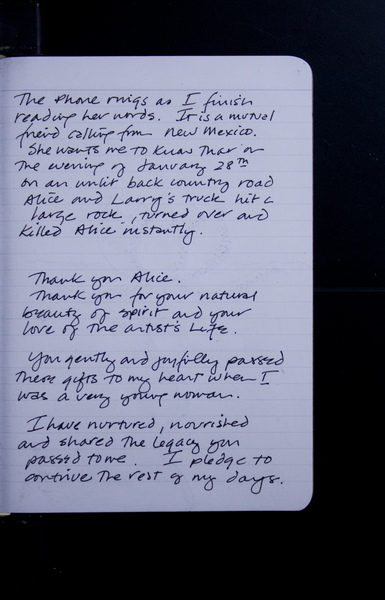 The phone rings as I finish
reading her words. It is a mutual
freind calling from New Mexico.
She wants me to know that on
The evening of January 28th
on an unlit back country road
Alice and Larry's truck hit a
large rock, turned over and
killed Alice instantly.
Thank you Alice.
Thank you for your natural
beauty of spirit and your
love of The artist's Life.
You gently and joyfully passed
These gifts to my heart when I
was a very young woman.
I have nurtured, nourished
and shared The legacy you
passed to me. I pledge to
continue The rest of my days.